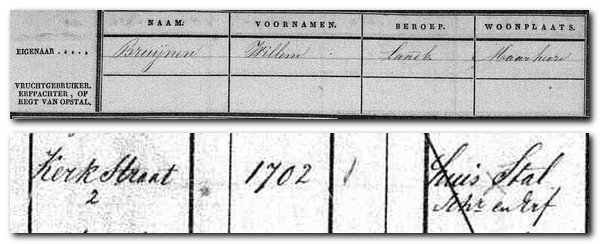 NAAM. VOORNAMEN. BEROEP. WOONPLAATS.
EIGENAAR . . . . . Bruijnen Willem Landb. Maarheeze
VRUCHTGEBRUIKER.
ERFPACHTER, OF
REGT VAN OPSTAL.
Kerkstraat 1702 1 Huis Stal
2 Schr en Erf